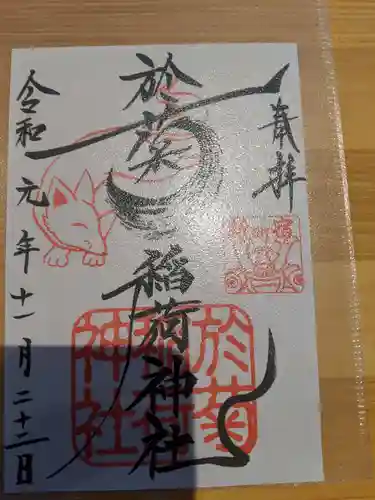 奉拝
於菊
稲荷神社
令和元年十一月二十二日
於菊
稲荷
神社